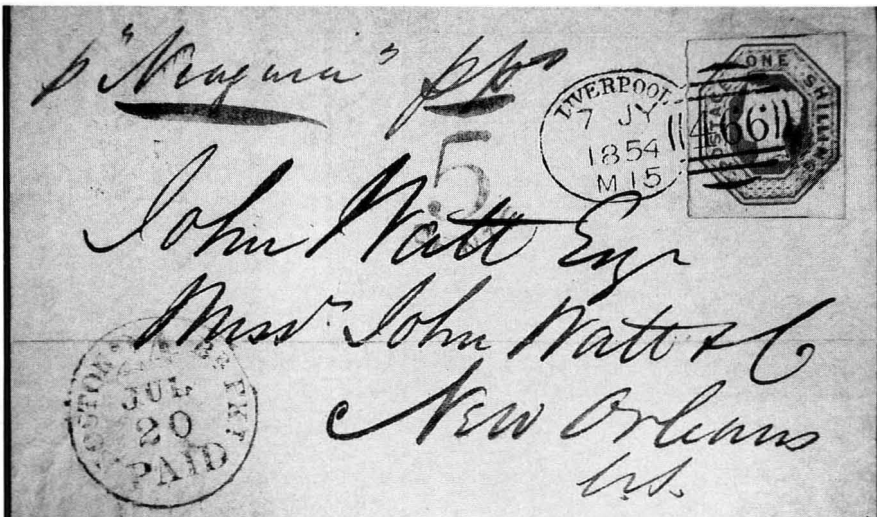 p "Niagara" pkt
LIVERPOOL
7 JY
1854
M 15
466
POSTAGE ONE SHILLING
5
CENTS
John Watt Esqr
Messrs. John Watt & Co
New Orleans
U.S.
BOSTON BR. PKT
JUL
20
PAID